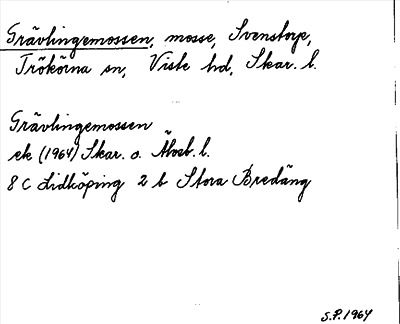 Grävlingemossen, mosse, Svenstorp,
Trökörna sn, Viste hd, Skar. l.
Grävlingemossen
ek (1964) Skar. o. Älvsb. l.
8 C Lidköping 2 b Stora Bredäng
S.P. 1964